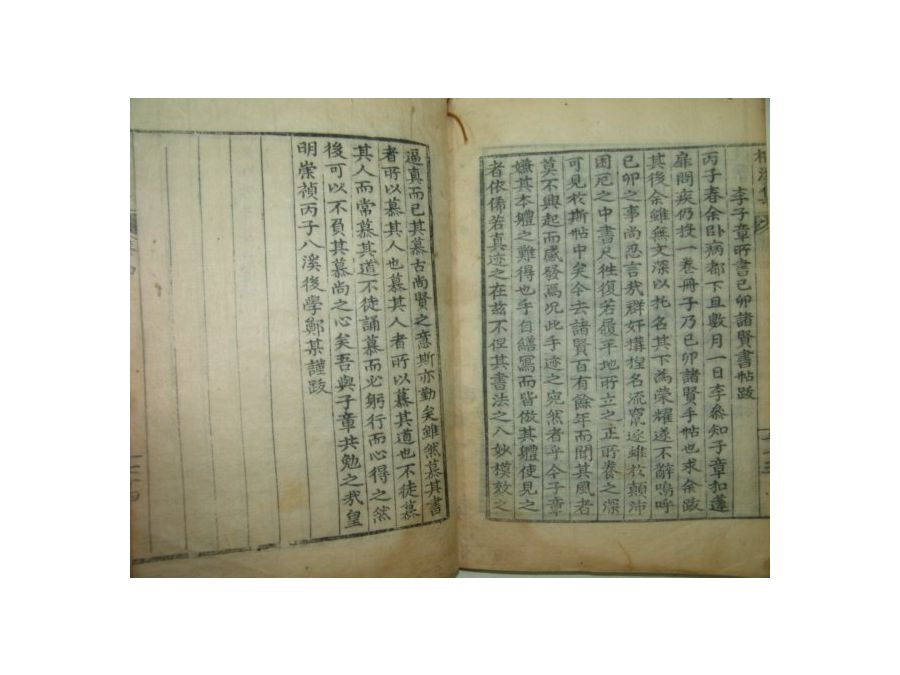 李子章所書己卯諸賢書帖跋
丙子春余臥病都下且數月一日李參知子章和蓬
扉問疾仍投一卷冊子乃己卯諸賢手帖也求余跋
其後余雖無文深以托名其下為榮耀遂不辭嗚呼
己卯之事尚忍言哉群奸構捏名流竄逐雖在顛沛
困厄之中書尺往復若履平地所立之正所養之深
可見於斯帖中矣今去諸賢百有餘年而聞其風者
莫不興起而感發焉况此手迹之宛然者乎今子章
嫌其本軆之難得也手自繕寫而皆倣其軆使見之
者依俙若真迹之在玆不但其書法之入妙模效之
逼真而已其慕古尚賢之意斯亦勤矣雖然慕其書
者所以慕其人也慕其人者所以慕其道也不徒慕
其人而常慕其道不徒誦慕而必躬行而心得之然
後可以不負其慕尚之心矣吾與子章共勉之哉皇
明崇禎丙子八溪後學鄭某謹跋